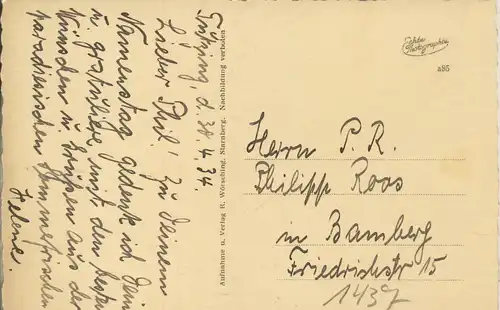 Tutzing, d. 30.4.34
Lieber Phil! Zu Deinem
Namenstag gedenk ich Dein
u. gratuliere mit den besten
Wünschen u. Grüßen aus der
paradiesischen
Helene.
Aufnahme u. Verlag H. Wörsching, Starnberg. Nachbildung verboten
Echte
Photographie
a85
Herrn P. R.
Philipp Roos
in Bamberg
Friedrichstr 15
1437